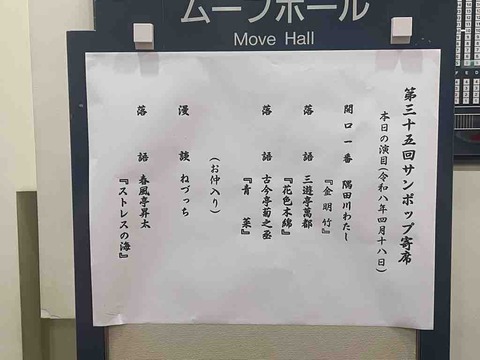 ムーブホール
Move Hall
第三十五回サンポップ寄席
本日の演目(令和八年四月十八日)
開口一番 隅田川わたし
『金明竹』
落語 三遊亭萬都
『花色木綿』
落語 古今亭菊之丞
『青菜』
(お仲入り)
漫談 ねづっち
落語 春風亭昇太
『ストレスの海』